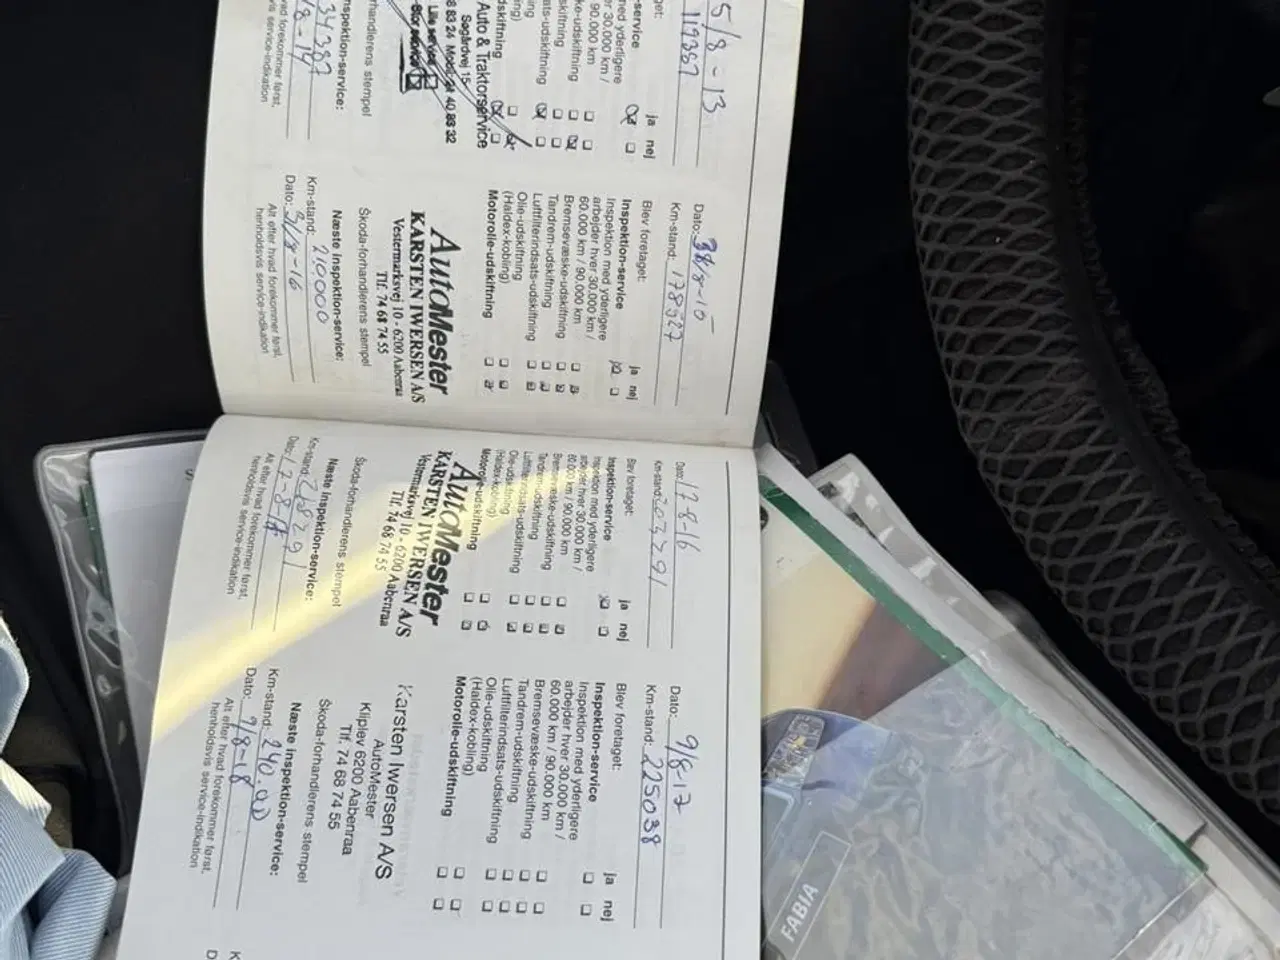 5/8-13
119387
service
ja nej
90.000 km
Auto & Traktorservice
Søgårdvej 15
Lille service
Stor service
inspektion-service:
service-indikation
Dato:
Km-stand: 178527
Blev foretaget:
ja nej
Inspektion-service
Inspektion med yderligere
arbejder hver 30.000 km /
60.000 km / 90.000 km
Bremsevæske-udskiftning
Tandrem-udskiftning
Luftfilterindsats-udskiftning
Olie-udskiftning
(Haldex-kobling)
Motorolie-udskiftning
AutoMester
KARSTEN IWERSEN A/S
Vestermarksvej 10 - 6200 Aabenraa
Tlf. 74 68 74 55
Škoda-forhandlerens stempel
Næste inspektion-service:
Km-stand: 210000
Dato: 31/8-16
Alt efter hvad forekommer først,
henholdsvis service-indikation
Dato: 17-8-16
Km-stand: 203291
Blev foretaget:
ja nej
Inspektion-service
Inspektion med yderligere
arbejder hver 30.000 km /
60.000 km / 90.000 km
Bremsevæske-udskiftning
Tandrem-udskiftning
Luftfilterindsats-udskiftning
Olie-udskiftning
(Haldex-kobling)
Motorolie-udskiftning
AutoMester
KARSTEN IWERSEN A/S
Vestermarksvej 10 - 6200 Aabenraa
Tlf. 74 68 74 55
Škoda-forhandlerens stempel
Næste inspektion-service:
Km-stand:
Dato:
Alt efter hvad forekommer først,
henholdsvis service-indikation
Dato: 9/8-17
Km-stand: 225038
Blev foretaget:
ja nej
Inspektion-service
Inspektion med yderligere
arbejder hver 30.000 km /
60.000 km / 90.000 km
Bremsevæske-udskiftning
Tandrem-udskiftning
Luftfilterindsats-udskiftning
Olie-udskiftning
(Haldex-kobling)
Motorolie-udskiftning
Karsten Iwersen A/S
AutoMester
Kliplev 6200 Aabenraa
Tlf. 74 68 74 55
Škoda-forhandlerens stempel
Næste inspektion-service:
Km-stand: 240.000
Dato: 9/8-18
Alt efter hvad forekommer først,
henholdsvis service-indikation
FABIA